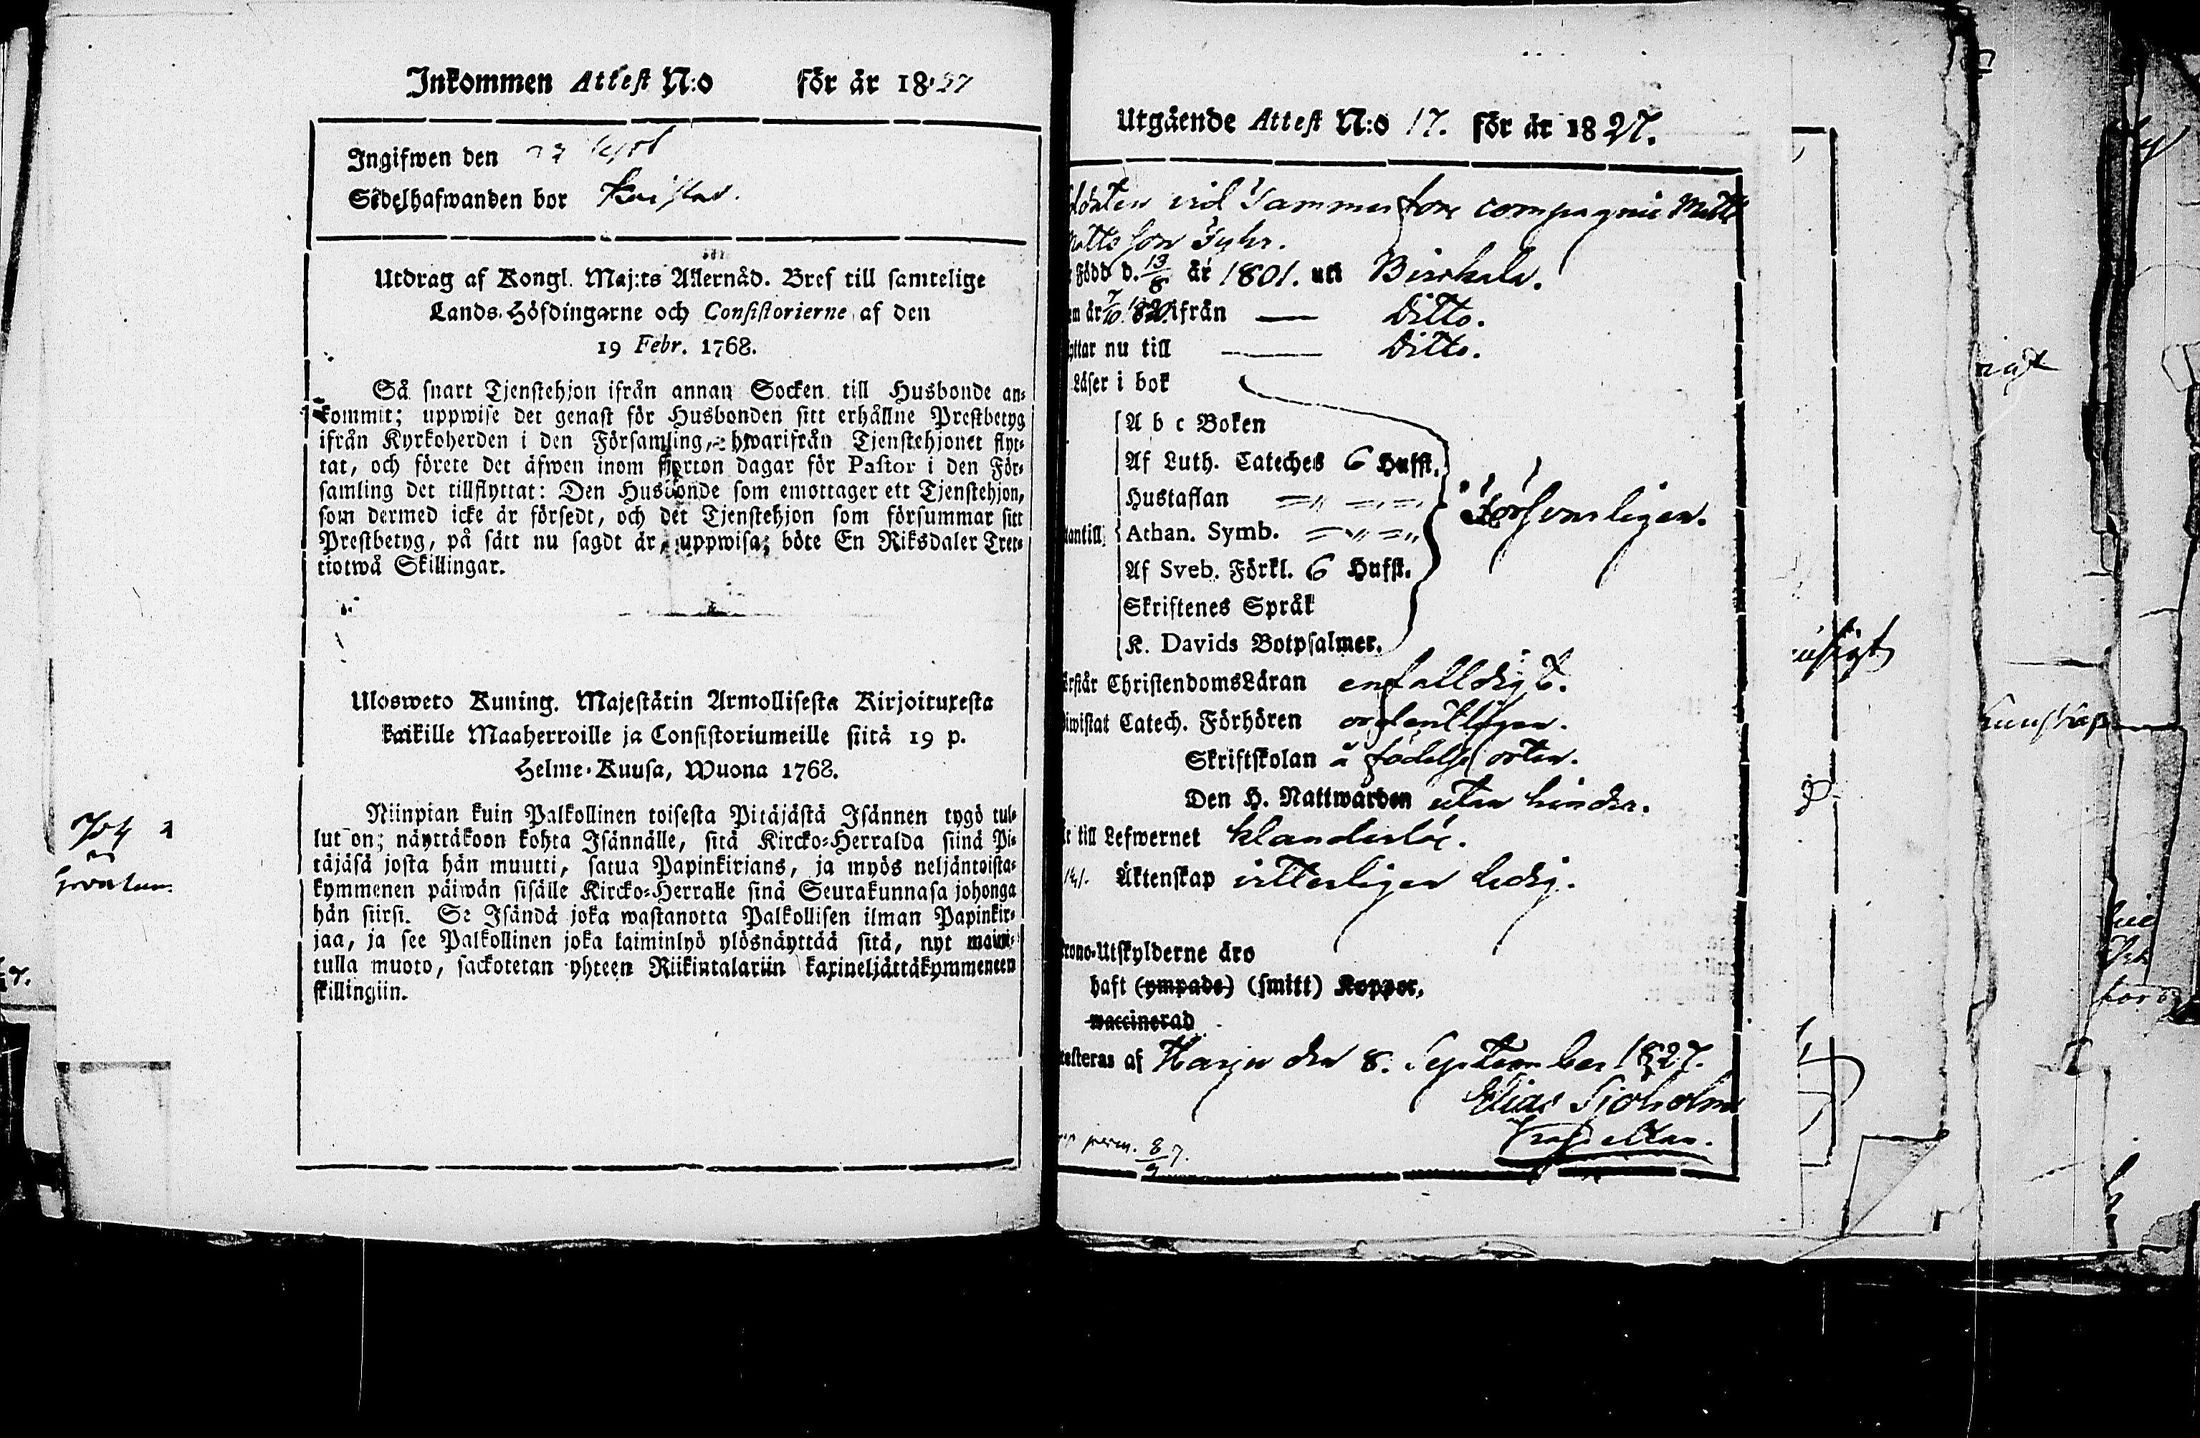 Inkommen Attest N:o för år 1827
Ingifwen den
Sedelhafwanden bor
Utdrag af Kongl. Maj:ts Allernåd. Bref till samtelige
Lands-Höfdingarne och Consistorierne af den
19 Febr. 1768.
Så snart Tjenstehjon ifrån annan Socken till Husbonde an-
kommit; uppwise det genast för Husbonden sitt erhållne Prestbetyg
ifrån Kyrkoherden i den Församling, hwarifrån Tjenstehjonet flyt-
tat, och förete det äfwen inom fjorton dagar för Pastor i den För-
samling det tillflyttat: Den Husbonde som emottager ett Tjenstehjon,
som dermed icke är försedt, och det Tjenstehjon som försummar sitt
Prestbetyg, på sätt nu sagdt är, uppwisa; böte En Riksdaler Tret-
tiotwå Skillingar.
Ulosweto Kuning. Majestätin Armollisesta Kirjoituxesta
kaikille Maaherroille ja Consistoriumeille siitä 19 p.
Helme-Kuusa, Wuona 1768.
Niinpian kuin Palkollinen toisesta Pitäjästä Isännen tygö tul-
lut on; näyttäkoon kohta Isännälle, sitä Kircko-Herralda siinä Pi-
täjäsä josta hän muutti, satua Papinkirjans, ja myös neljäntoista-
kymmenen päiwän sisälle Kircko-Herralle sinä Seurakunnasa johonga
hän siirsi. Se Isändä joka wastanotta Palkollisen ilman Papinkir-
jaa, ja see Palkollinen joka laiminlyö ylösnäyttää sitä, nyt mainit-
tulla muoto, sackotetan yhteen Riikintalariin kaxineljättäkymmeneen
skillingiin.
Utgående Attest N:o 17. för år 1827.
Soldaten vid Tammerfors compagnie Matts
Mattsson Fyhr.
Född d. 13/8 år 1801. uti Birkala.
år 7/10 1820. ifrån — Ditto.
flyttar nu till — Ditto.
Läser i bok
A b c Boken
Af Luth. Cateches 6 Hufst.
Hustaflan
Athan. Symb.
Af Sveb. Förkl. 6 Hufst.
Skriftenes Språk
K. Davids Botpsalmer.
Försvarligen.
Förstår ChristendomsLäran enfalldigt.
Biwistat Catech. Förhören ordentligen.
Skriftskolan å födelse orten.
Den H. Nattwarden utan hinder.
till Lefwernet klanderlös.
Äktenskap vitterligen ledig.
Krono-Utskylderne äro
haft (ympade) (smitt) Koppor,
waccinerad
Attesteras af Harju den 8. September 1827.
Elias Sjöholm
Capellan.